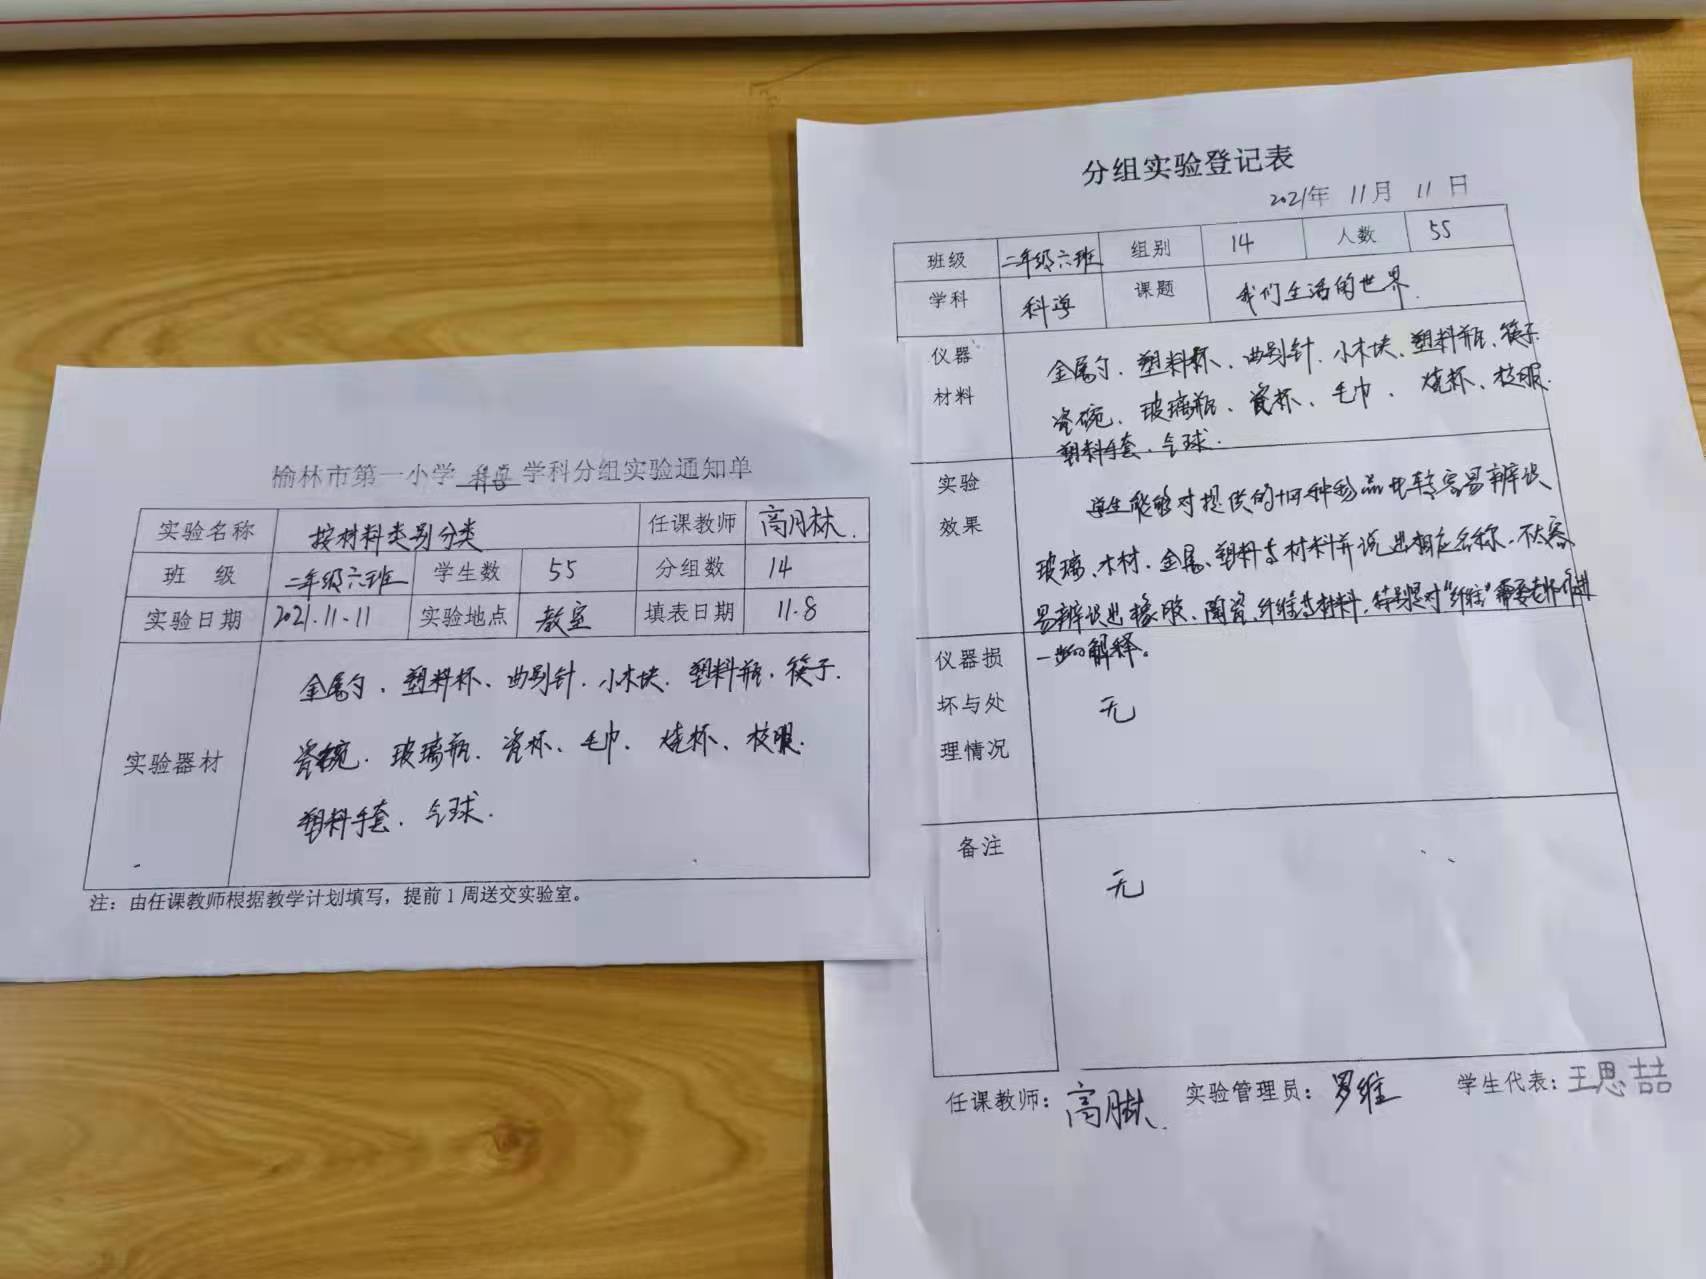 榆林市第一小学 科学 学科分组实验通知单
实验名称 按材料类别分类 任课教师 高月林
班 级 二年级六班 学生数 55 分组数 14
实验日期 2021.11.11 实验地点 教室 填表日期 11.8
实验器材
金属勺、塑料杯、曲别针、小木块、塑料瓶、筷子
瓷碗、玻璃瓶、瓷杯、毛巾、烧杯、校服
塑料手套、气球.
注：由任课教师根据教学计划填写，提前1周送交实验室。
分组实验登记表
2021年 11月 11日
班级 二年级六班 组别 14 人数 55
学科 科学 课题 我们生活的世界.
仪器材料
金属勺、塑料杯、曲别针、小木块、塑料瓶、筷子
瓷碗、玻璃瓶、瓷杯、毛巾、烧杯、校服.
塑料手套、气球.
实验效果
学生能够对提供的十四种物品比较容易辨识
玻璃、木材、金属、塑料等材料并说出相应名称，不太容
易辨识出橡胶、陶瓷、纤维等材料，特别是对“纤维”需要老师进
一步的解释。
仪器损坏与处理情况 无
备注 无
任课教师：高月林 实验管理员：罗维 学生代表：王思喆